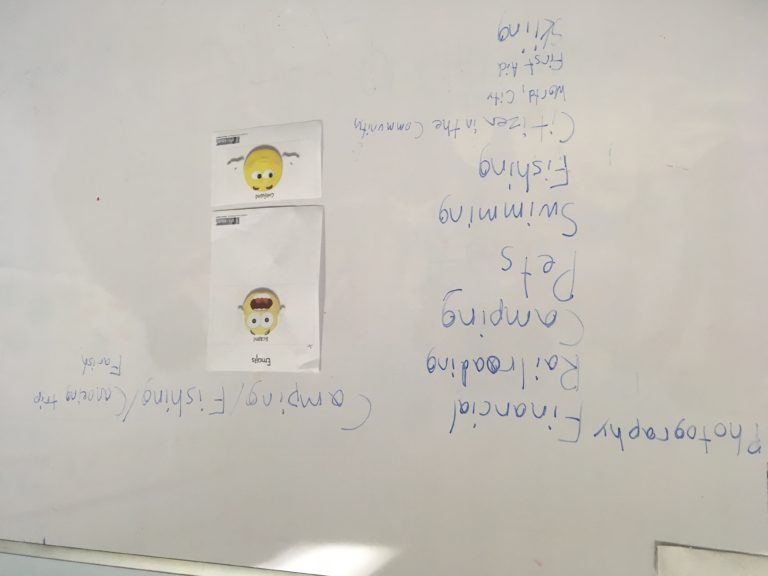 Photography Financial
Railroading
Camping
Pets
Swimming
Fishing
Citizen in the Community
World, City
First Aid
Skiing
Camping/Fishing/Canoeing trip
Farish
Emojis